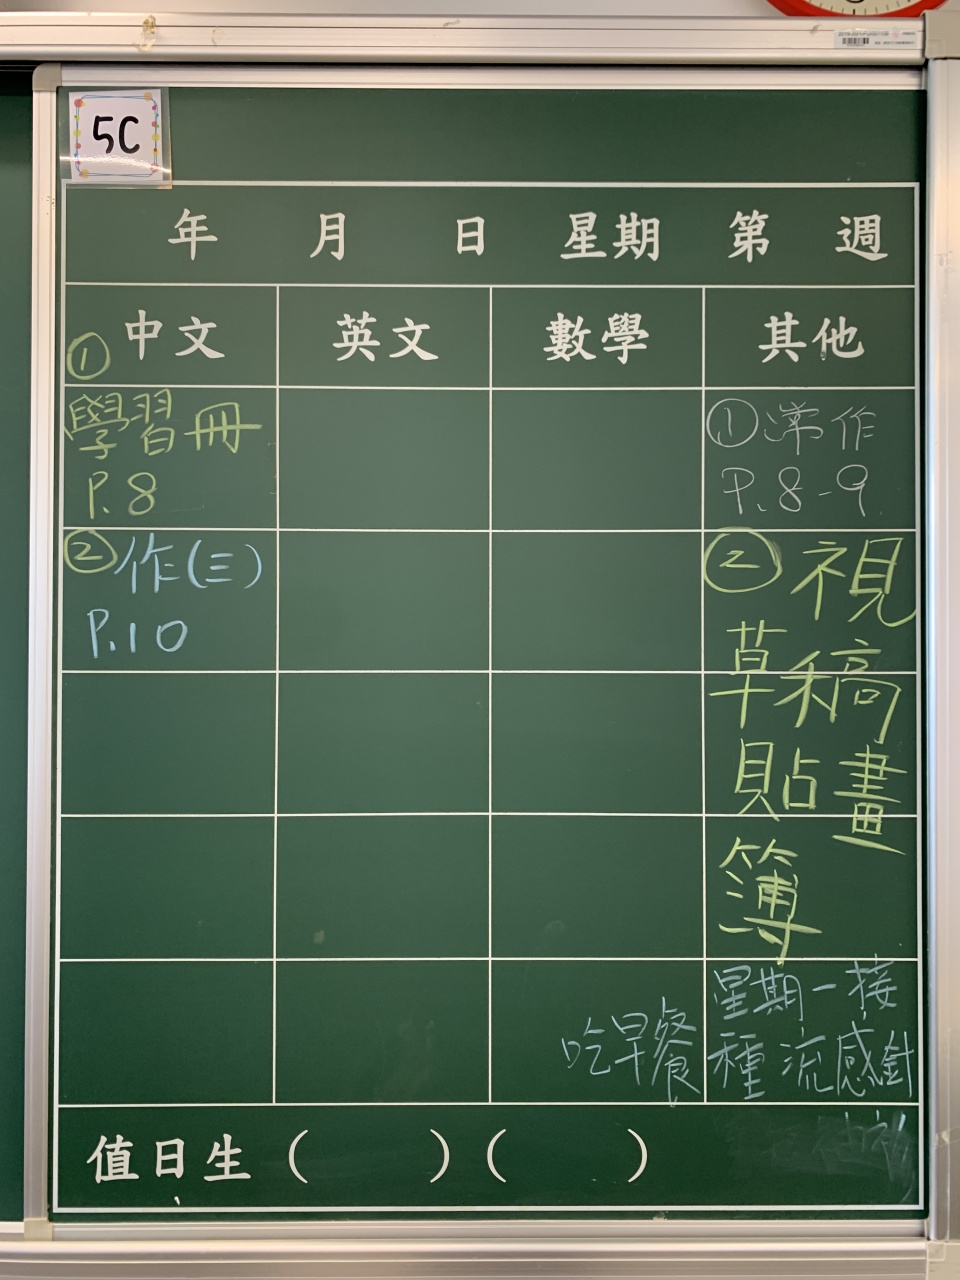 5C
年 月 日 星期 第 週
中文 英文 數學 其他
①
學習冊
P.8
②作(三)
P.10
①常作
P.8-9
②視
草稿
貼畫
簿
星期一接
種流感針
吃早餐
值日生( )( )